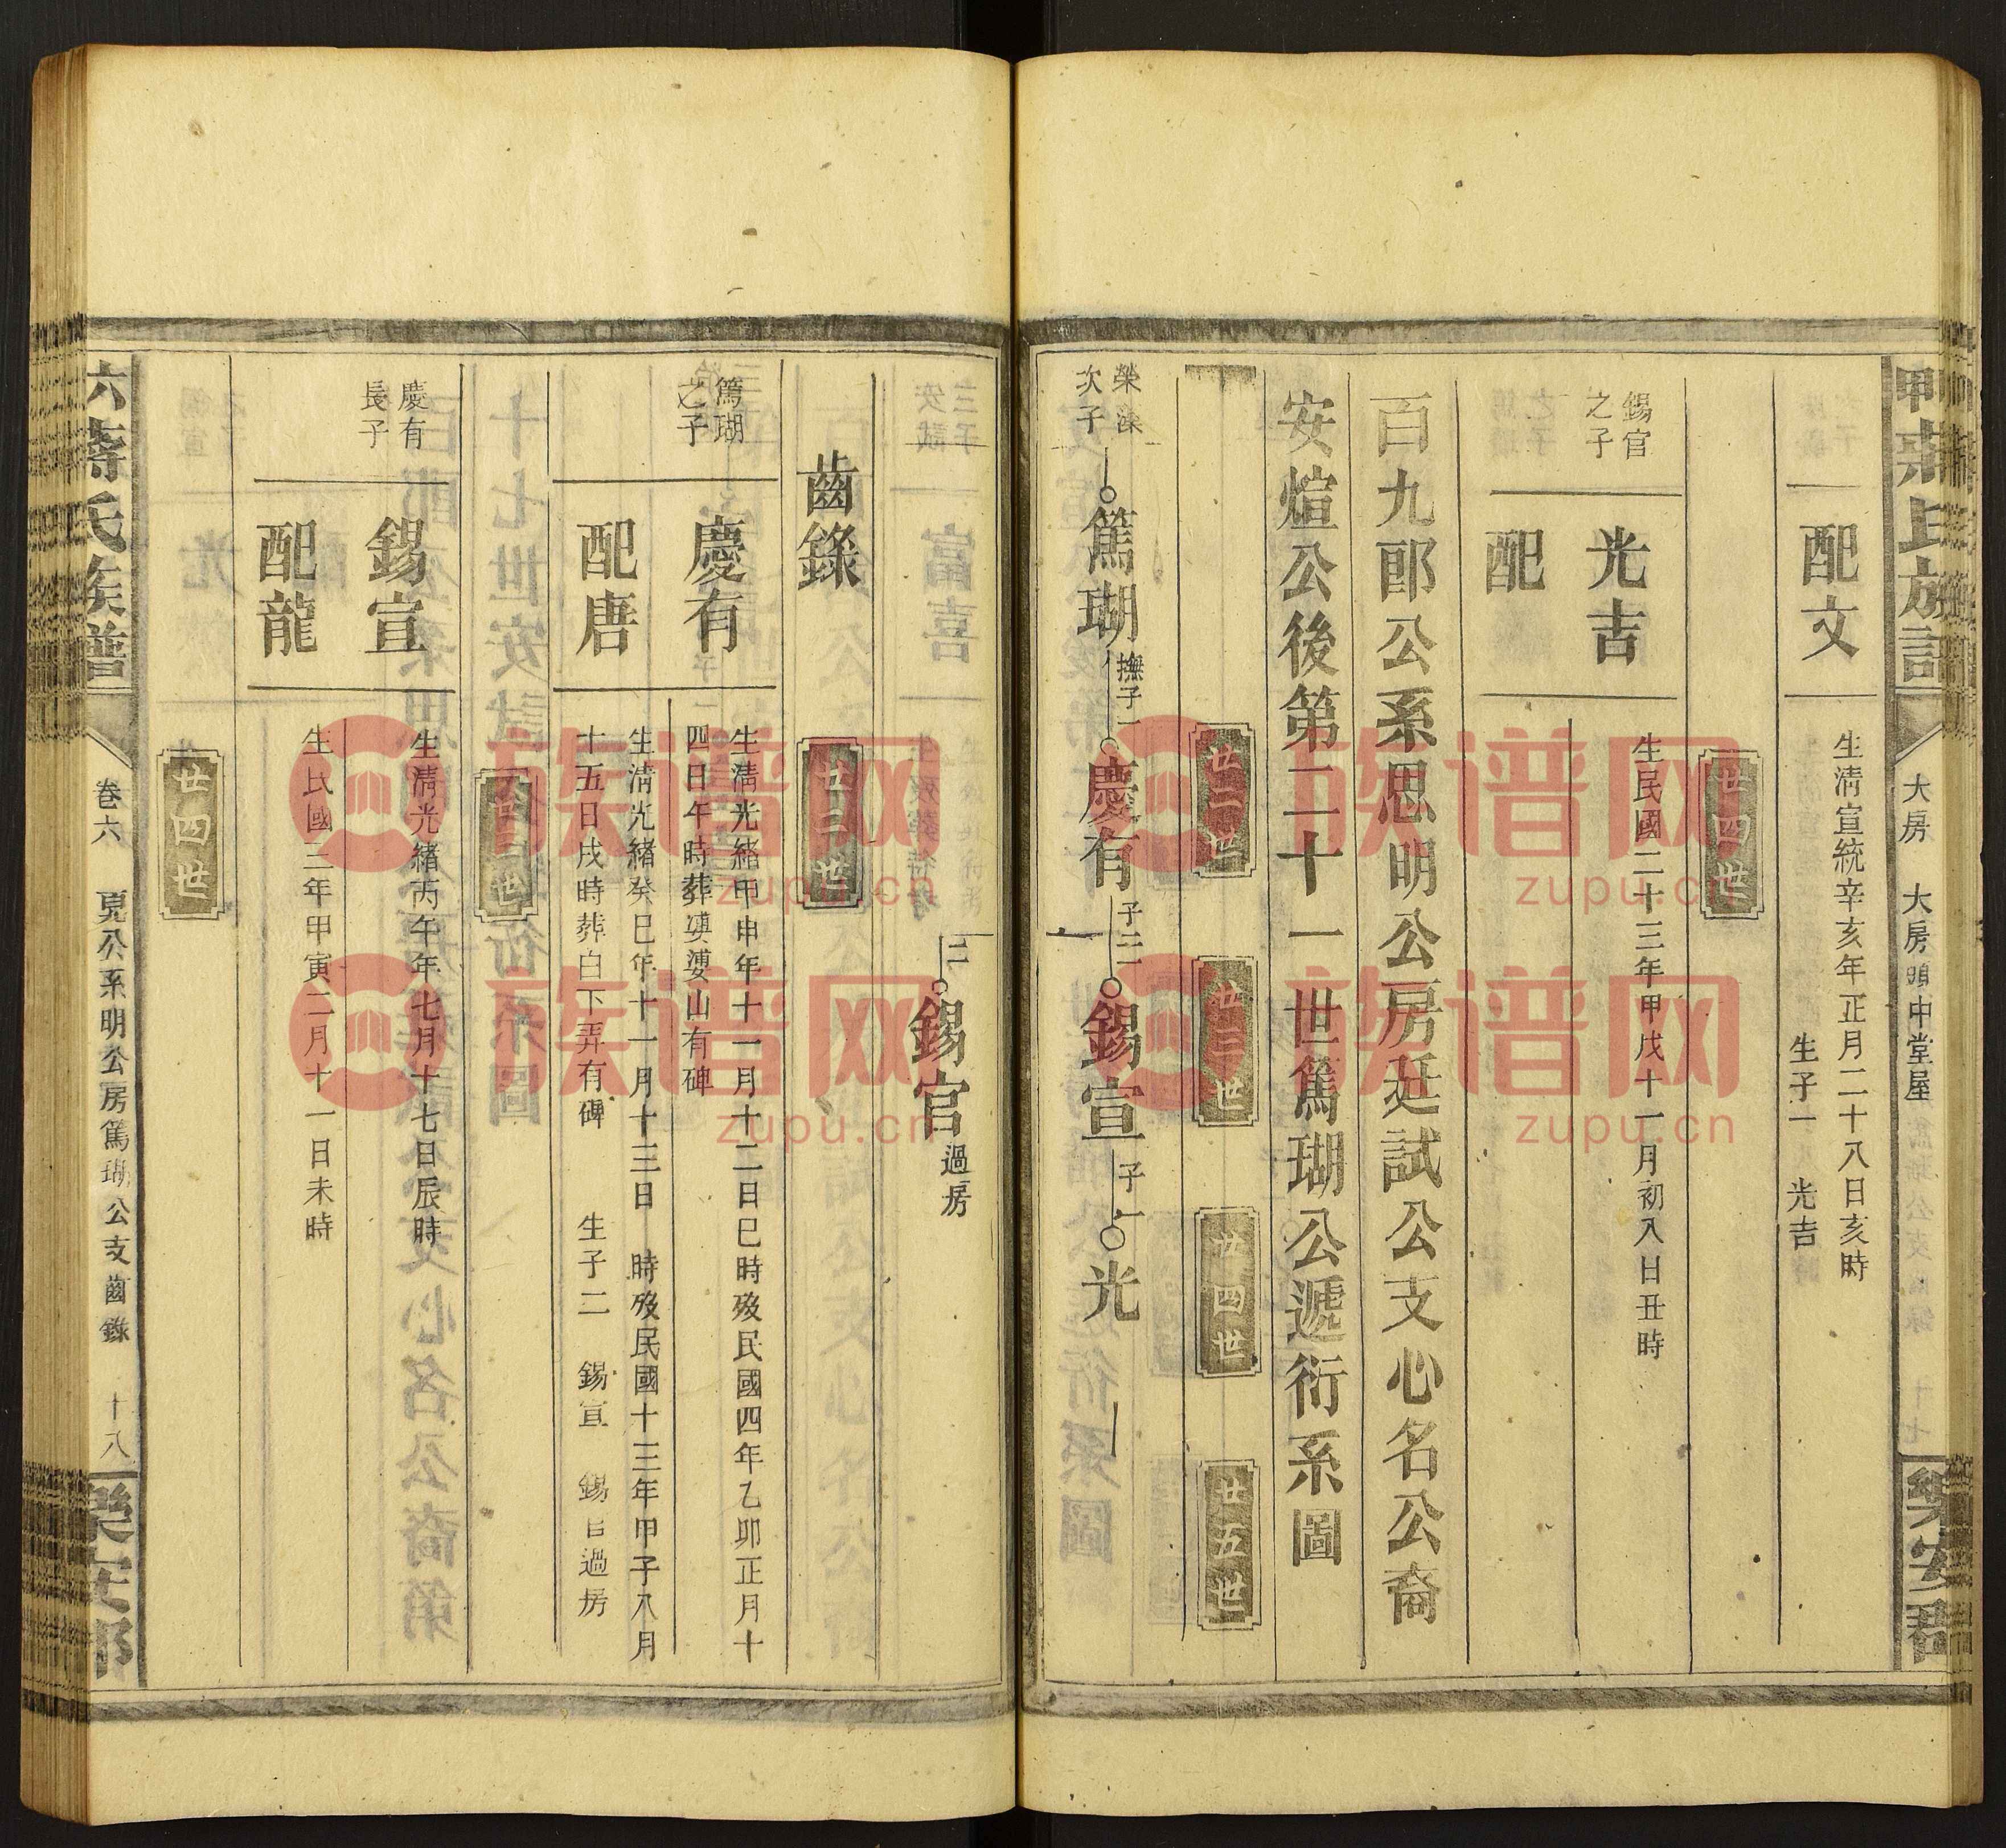 蔣氏族譜
大房 大房頭中堂屋
樂安郡
配文
生清宣統辛亥年正月二十八日亥時
生子一 光吉
廿四世
錫官
之子
光吉
配
生民國二十三年甲戌十一月初八日丑時
百九郎公系思明公房廷試公支心名公裔
安煊公後第二十一世篤瑚公遞衍系圖
廿二世
廿三世
廿四世
廿五世
榮深
次子
篤瑚
撫子一
慶有
子二
一
錫宣
子一
光
二
錫官
過房
齒錄
廿二世
篤瑚
之子
慶有
配唐
生清光緒甲申年十一月十二日巳時歿民國四年乙卯正月十
四日午時葬山有碑
生清光緒癸巳年十一月十三日 時歿民國十三年甲子八月
十五日戌時葬白下弄有碑 生子二 錫宣 錫官過房
廿三世
慶有
長子
錫宣
配龍
生清光緒丙午年七月十七日辰時
生民國三年甲寅二月十一日未時
廿四世
六蔣氏族譜
卷六
公系明公房篤瑚公支齒錄
十八
樂安郡
族谱网
zupu.cn
族谱网
zupu.cn
族谱网
zupu.cn
族谱网
zupu.cn